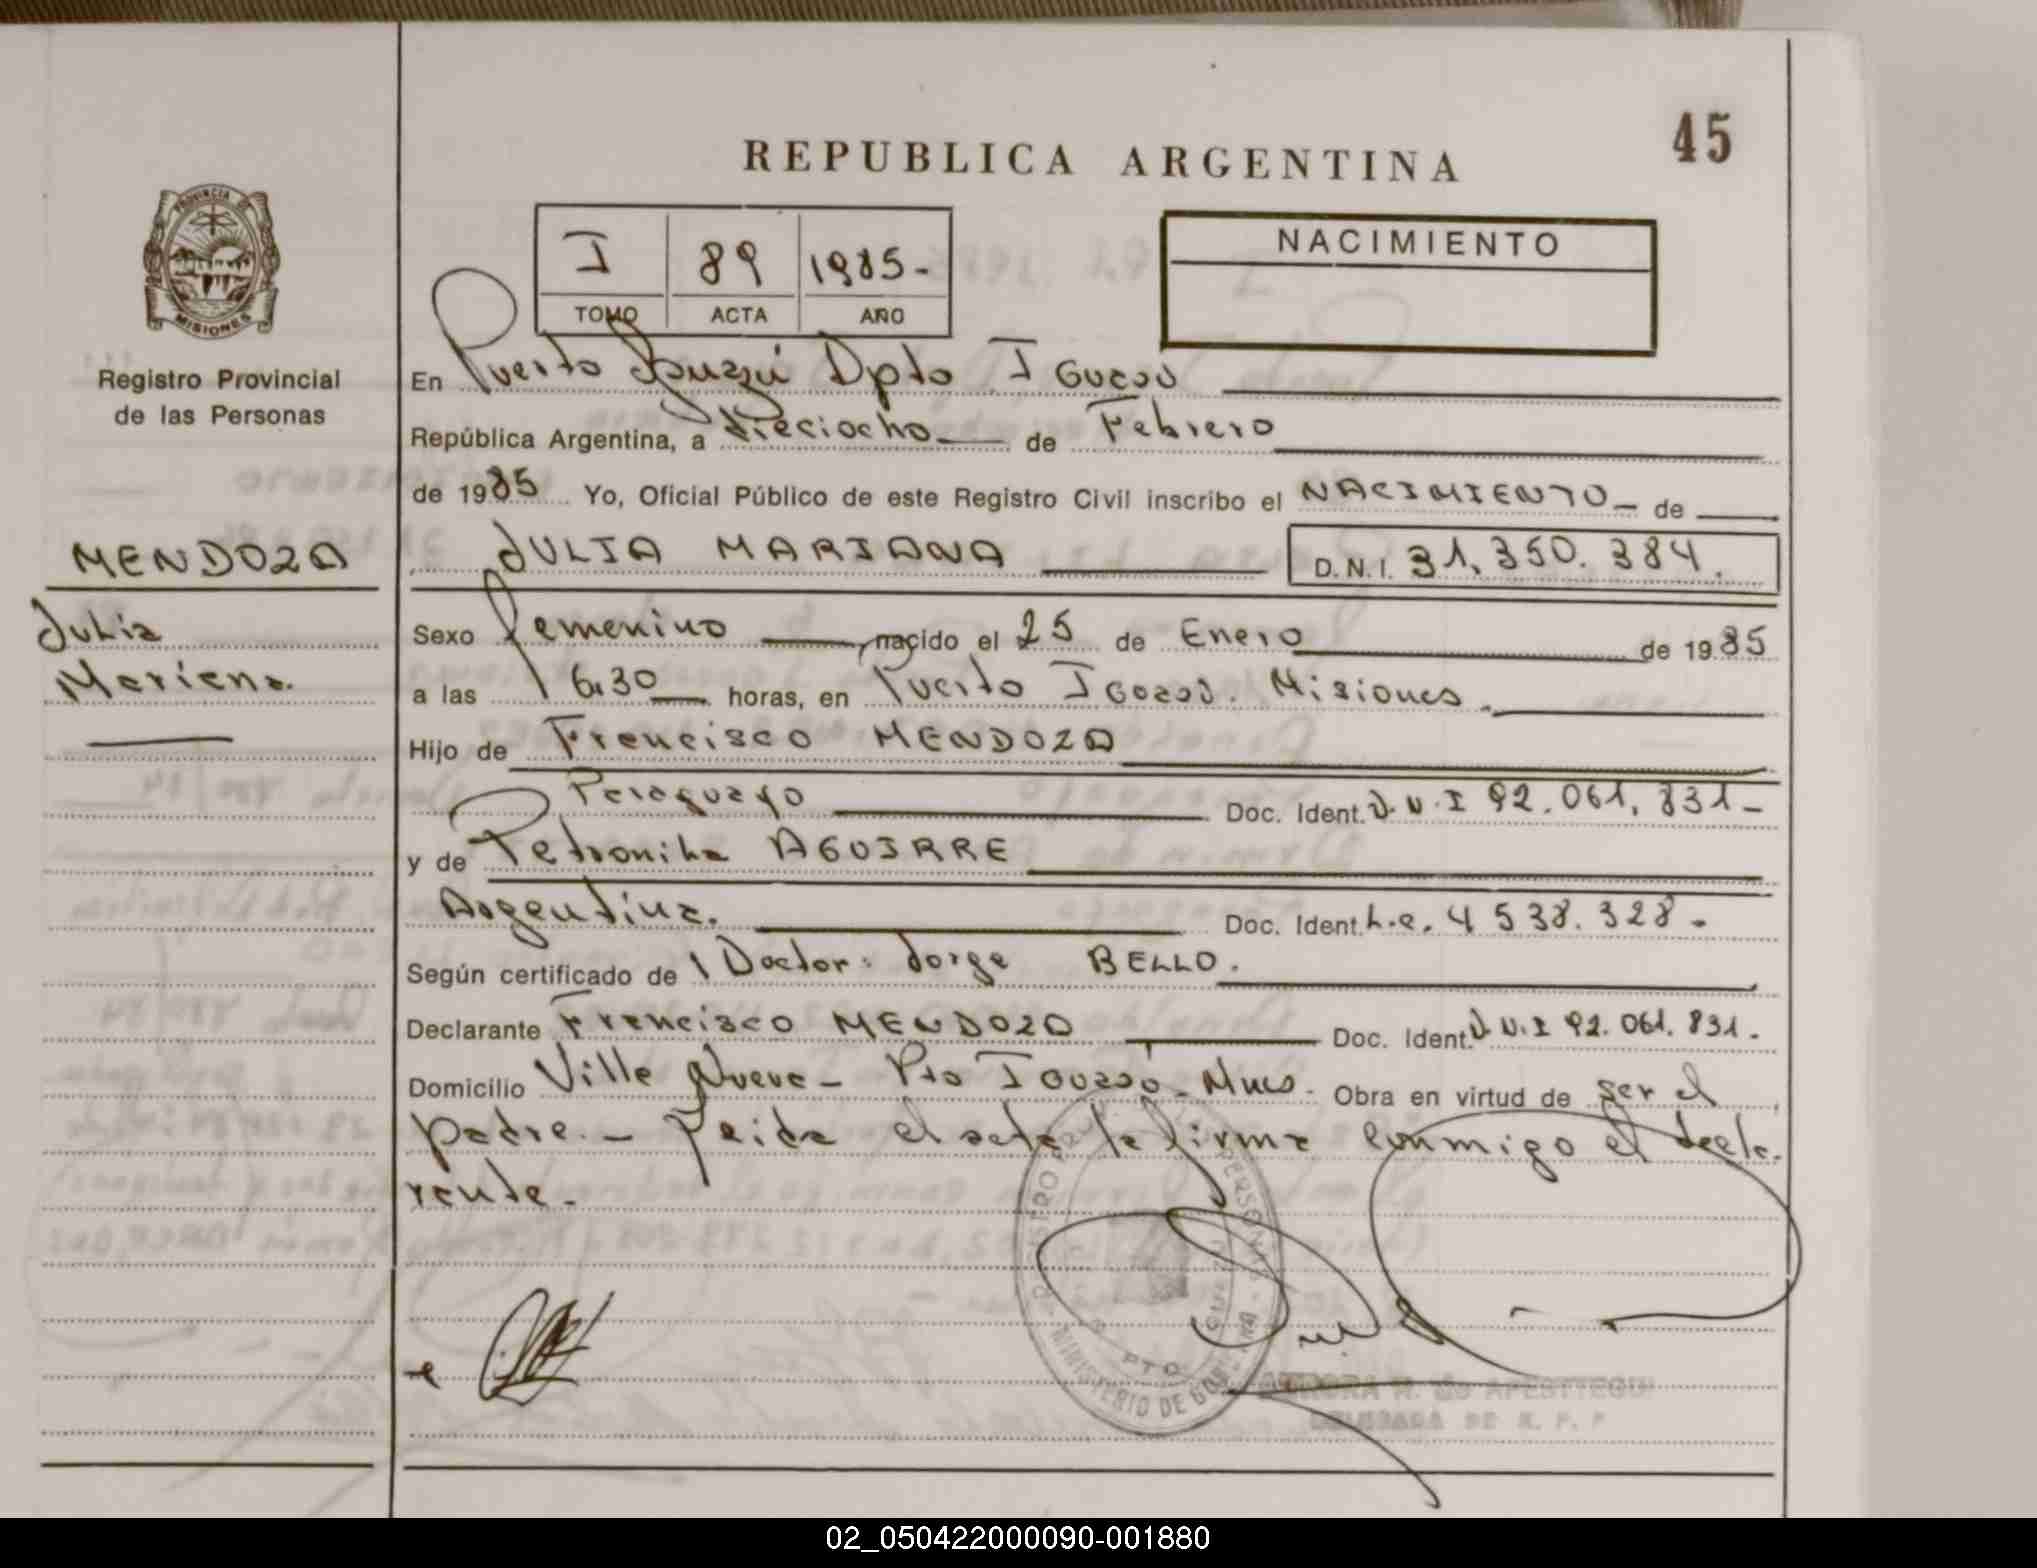 45
REPUBLICA ARGENTINA
PROVINCIA DE
MISIONES
Registro Provincial
de las Personas
I 89 1985.-
TOMO ACTA AÑO
NACIMIENTO
En Puerto Iguazú Dpto Iguazú
República Argentina, a dieciocho de Febrero
de 1985 Yo, Oficial Público de este Registro Civil inscribo el NACIMIENTO de
MENDOZA
Julia
Mariana.
JULIA MARIANA D.N.I. 31.350.384.
Sexo Femenino nacido el 25 de Enero de 1985
a las 16,30 horas, en Puerto Iguazú. Misiones.
Hijo de Francisco MENDOZA
Paraguayo Doc. Ident. D.N.I 92.061.831-
y de Petronila AGUIRRE
Argentina. Doc. Ident. L.C. 4 538.328-
Según certificado de Doctor: Jorge BELLO.
Declarante Francisco MENDOZA Doc. Ident. D.N.I 92.061.831.
Domicilio Villa Nueva - Pto Iguazú - Mnes. Obra en virtud de ser el
padre.- Leida el acta la firma conmigo el decla-
rante.-
MINISTERIO DE
PTO.
DELEGADA DE R. P. P
02_050422000090-001880